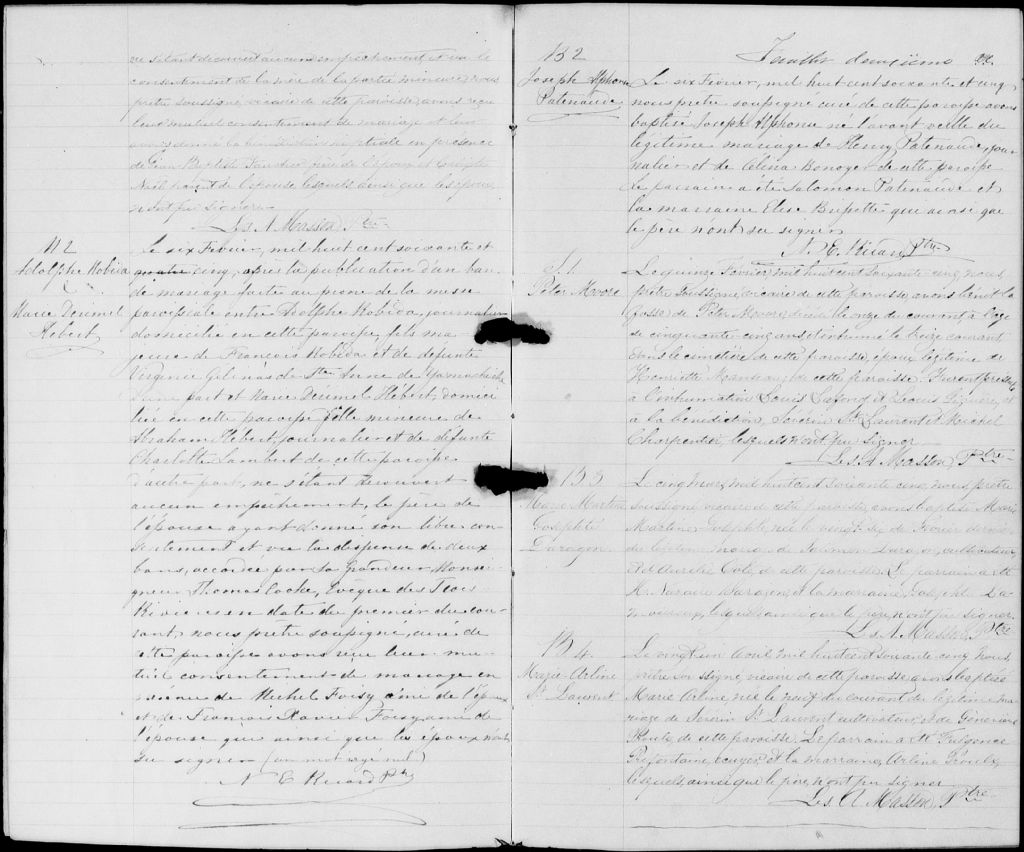 ne s'étant découvert aucun empêchement et vu le
consentement de la mère de la partie mineure, nous
prêtre soussigné, vicaire de cette paroisse, avons reçu
leur mutuel consentement de mariage et leur
avons donné la bénédiction nuptiale en présence
de Jean Baptiste père de l'époux et
Noël de l'épouse lesquels ainsi que les époux
n'ont pu signer
Les A Masson Ptre
M2
Adolphe Robida
&
Marie Derimel
Hebert
Le six Fevrier, mil huit cent soixante et
cinq, après la publication d'un ban
de mariage faite au prone de la messe
paroissiale entre Adolphe Robida, journalier
domicilie en cette paroisse, fils ma
jeure de François Robida et de defunte
Virginie Gelinas de Ste Anne de Yamachiche
d'une part et Marie Dérimel Hébert, domici
liée en cette paroisse fille mineure de
Abraham Hebert journalier et de defunte
Charlotte Lambert de cette paroisse
d'autre part, ne s'étant decouvert
aucun empêchement, le père de
l'épouse ayant donné son libre con-
sentement et vu la dispense de deux
bans, accordée par Sa Grandeur, Monsei-
gneur Thomas Cooke, Evêque des Trois
Rivieres en date du premier du cou-
rant, nous prêtre soussigné, curé de
cette paroisse avons reçu leur mu-
tuel consentement de mariage en
présence de Michel Foisy ami de l'époux
et de François Xavier Foisy ami de
l'épouse que ainsi que les époux n'ont
su signer (un mot rayé nul)
N E Ricard Ptre
B2
Joseph Alphonse
Patenaude
Feuillet deuxième
Le six Fevrier, mil huit cent soixante et cinq
nous prêtre soussigné curé de cette paroisse avons
baptisé Joseph Alphonse né l'avant veille du
légitime mariage de Henry Patenaude, jour
nalier et de Celina Bonoyer de cette paroisse
Le parrain a été Salomon Patenaude et
la marraine Elise Bissette qui ainsi que
le père n'ont su signer
N. E. Ricard Ptre
S.1
Peter Moore
Le quinze Fevrier mil huit cent soixante cinq nous
prêtre soussigné, vicaire de cette paroisse, avons bénit la
fosse de Peter Moore décédé le onze du courant à l'age
de cinquante cinq ans et inhumé le treize courant
dans le cimetière de cette paroisse, époux légitime de
Henriette Manseau, de cette paroisse. Furent présents
à l'inhumation Louis Lafond et Louis et
à la bénédiction, Sévérin St Laurent et Michel
Charpentier lesquels n'ont pu signer
Les A Masson, Ptre
B3
Marie Martine
Josephte
Daragon
Le cinq Mars, mil huit cent soixante cinq, nous prêtre
soussigné, vicaire de cette paroisse, avons baptisé Marie
Martine Josephte née le vingt de Fevrier dernier
du légitime mariage de Daragon, cultivateur,
et de Coté de cette paroisse. Le parrain a été
M. Navaire Daragon, et la marraine, Josephte La
moureux, lesquels ainsi que le père n'ont pu signer
Les A Masson, Ptre
B4
Marie Arline
St Laurent
Le vingt un Avril mil huit cent soixante cinq, nous,
prêtre soussigné, vicaire de cette paroisse avons baptisé
Marie Arline née le neuf du courant du légitime ma-
riage de Séverin St Laurent cultivateur, et de Génevieve
de cette paroisse. Le parrain a été Fulgence
Préfontaine, écuyer, et la marraine, Arline
lesquels, ainsi que le père, n'ont pu signer
Les A Masson, Ptre